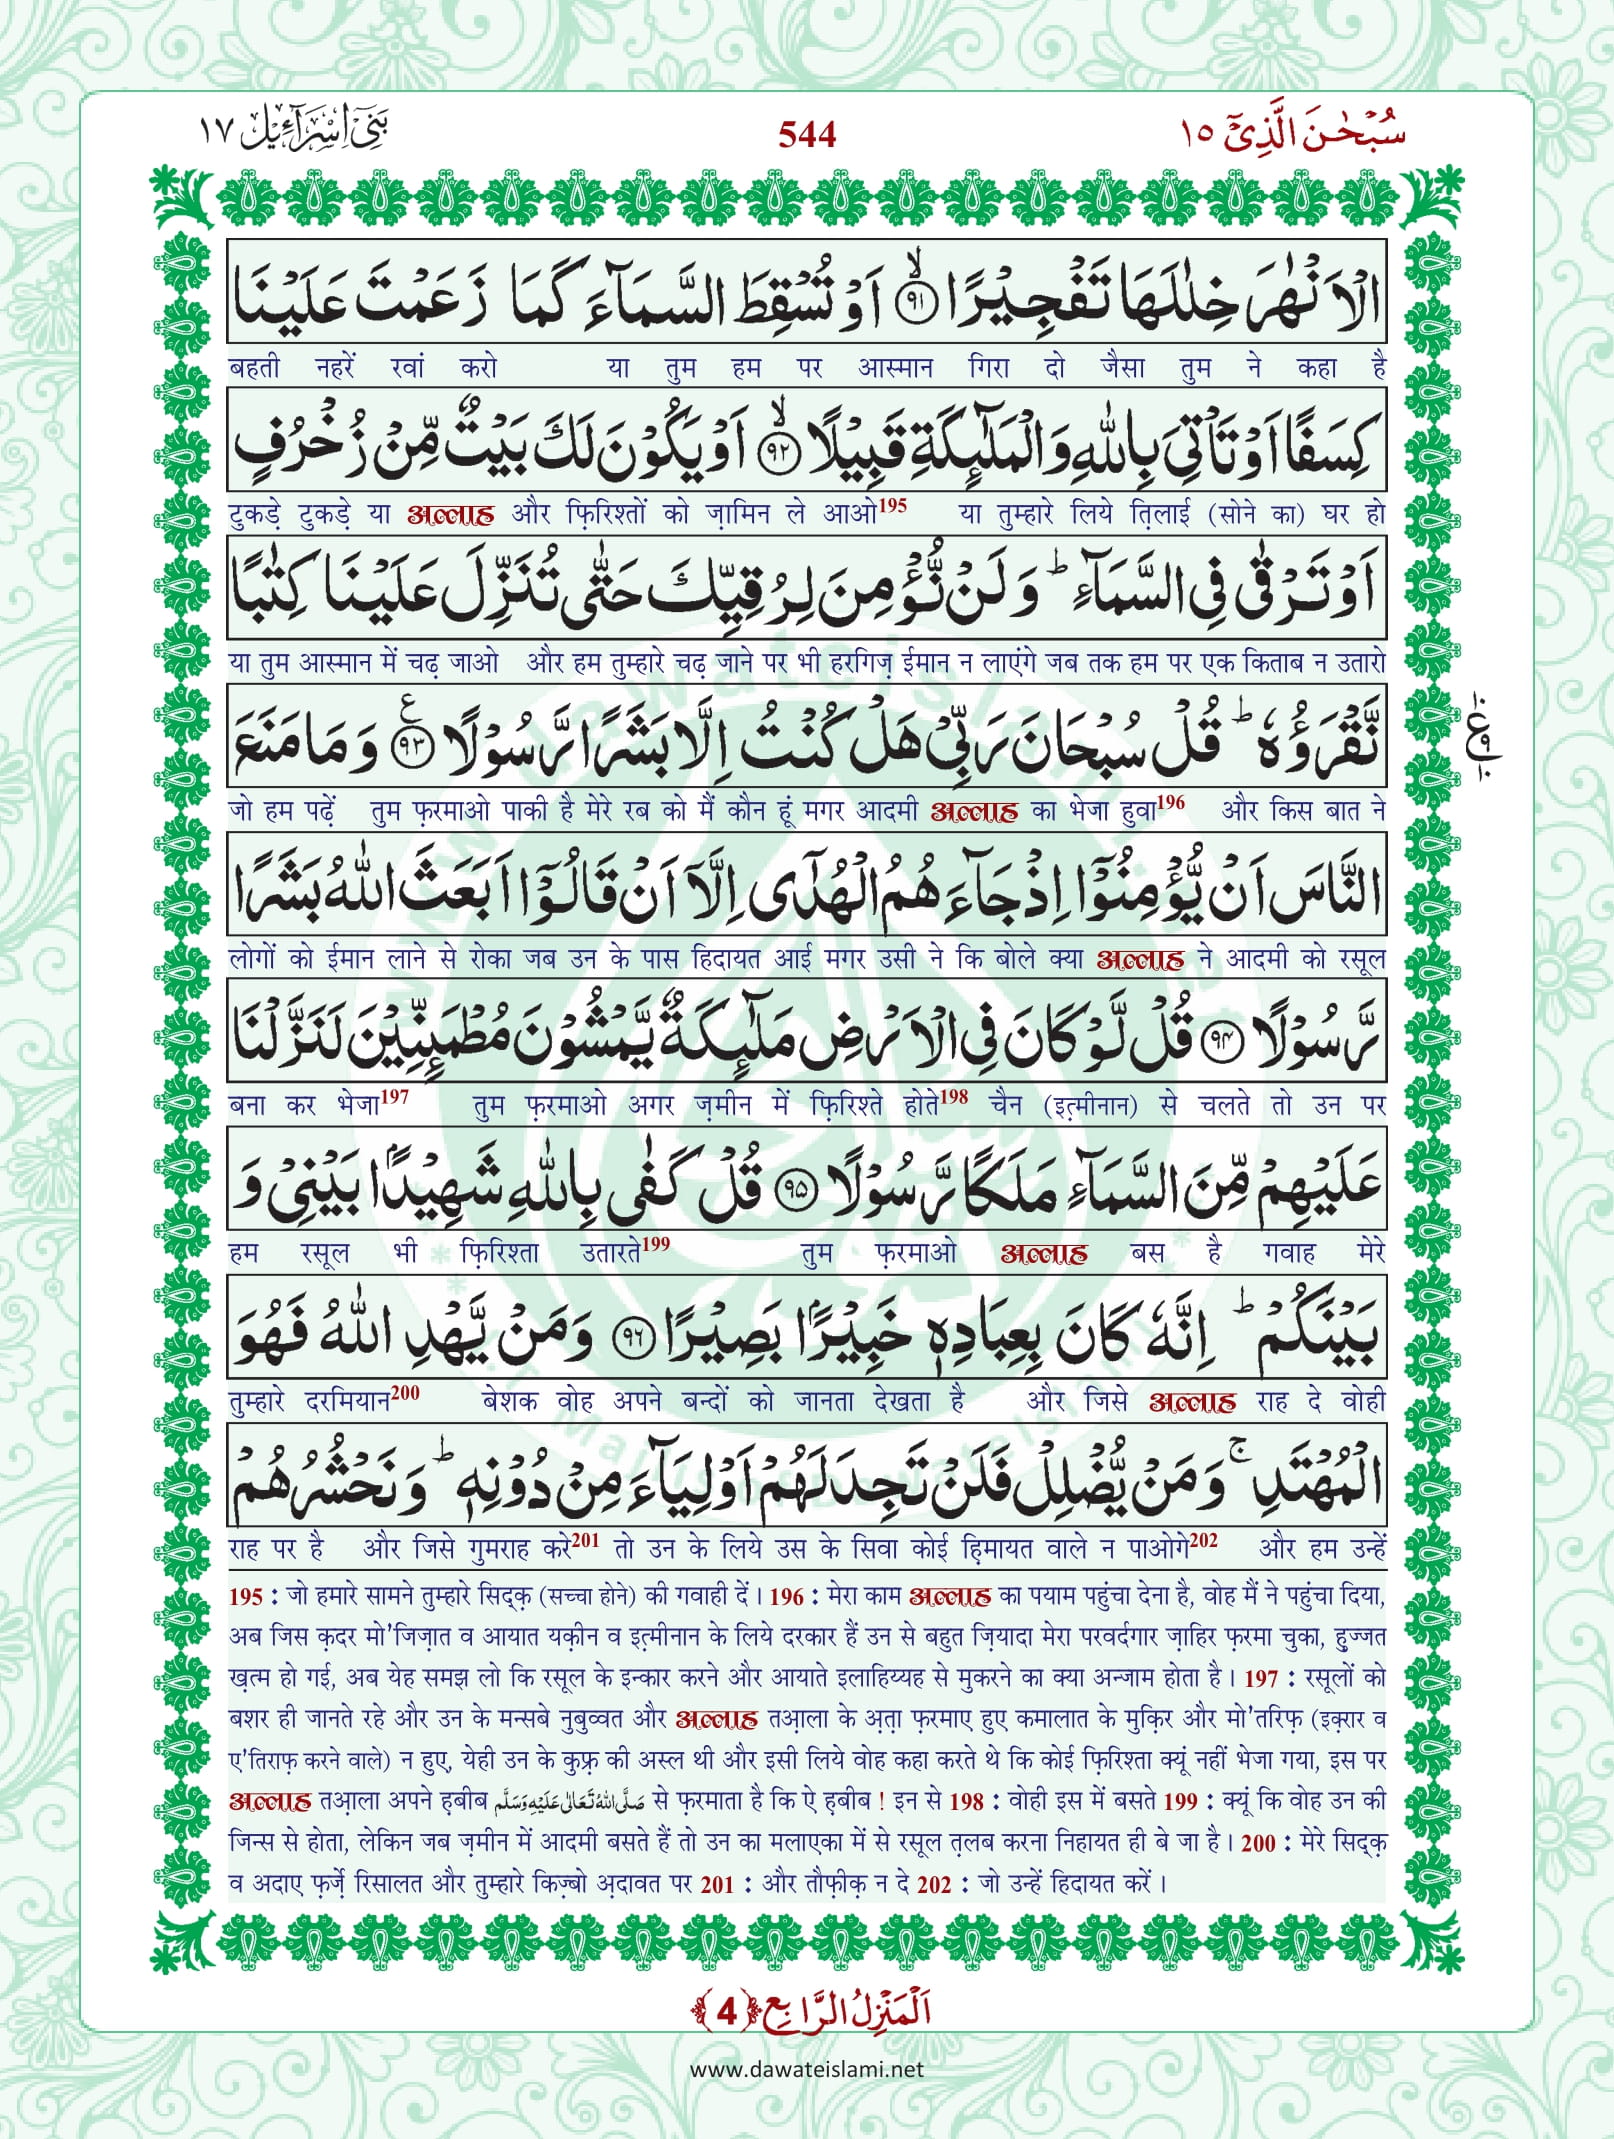 بَنِیۡۤ اِسۡرَآءِیۡل ١٧
544
سُبۡحٰنَ الَّذِیۡۤ ١٥
الۡاَنۡهٰرَ خِلٰلَهَا تَفۡجِیۡرًا ﴿۹۱﴾ۙ اَوۡ تُسۡقِطَ السَّمَآءَ كَمَا زَعَمۡتَ عَلَیۡنَا
बहती नहरें रवां करो या तुम हम पर आस्मान गिरा दो जैसा तुम ने कहा है
كِسَفًا اَوۡ تَاۡتِیَ بِاللّٰهِ وَالۡمَلٰٓئِكَةِ قَبِیۡلًا ﴿۹۲﴾ۙ اَوۡ یَكُوۡنَ لَكَ بَیۡتٌ مِّنۡ زُخۡرُفٍ
टुकड़े टुकड़े या अल्लाह और फ़िरिश्तों को ज़ामिन ले आओ195 या तुम्हारे लिये त़िलाई (सोने का) घर हो
اَوۡ تَرۡقٰی فِی السَّمَآءِ ؕ وَلَنۡ نُّؤۡمِنَ لِرُقِیِّكَ حَتّٰی تُنَزِّلَ عَلَیۡنَا كِتٰبًا
या तुम आस्मान में चढ़ जाओ और हम तुम्हारे चढ़ जाने पर भी हरगिज़ ईमान न लाएंगे जब तक हम पर एक किताब न उतारो
نَّقۡرَؤُهٗ ؕ قُلۡ سُبۡحَانَ رَبِّیۡ هَلۡ كُنۡتُ اِلَّا بَشَرًا رَّسُوۡلًا ﴿۹۳﴾ۧ وَمَا مَنَعَ
जो हम पढ़ें तुम फ़रमाओ पाकी है मेरे रब को मैं कौन हूं मगर आदमी अल्लाह का भेजा हुवा196 और किस बात ने
النَّاسَ اَنۡ یُّؤۡمِنُوۡۤا اِذۡ جَآءَهُمُ الۡهُدٰۤی اِلَّاۤ اَنۡ قَالُوۡۤا اَبَعَثَ اللّٰهُ بَشَرًا
लोगों को ईमान लाने से रोका जब उन के पास हिदायत आई मगर उसी ने कि बोले क्या अल्लाह ने आदमी को रसूल
رَّسُوۡلًا ﴿۹۴﴾ قُلۡ لَّوۡ كَانَ فِی الۡاَرۡضِ مَلٰٓئِكَةٌ یَّمۡشُوۡنَ مُطۡمَئِنِّیۡنَ لَنَزَّلۡنَا
बना कर भेजा197 तुम फ़रमाओ अगर ज़मीन में फ़िरिश्ते होते198 चैन (इत़्मीनान) से चलते तो उन पर
عَلَیۡهِمۡ مِّنَ السَّمَآءِ مَلَكًا رَّسُوۡلًا ﴿۹۵﴾ قُلۡ كَفٰی بِاللّٰهِ شَهِیۡدًۢا بَیۡنِیۡ وَ
हम रसूल भी फ़िरिश्ता उतारते199 तुम फ़रमाओ अल्लाह बस है गवाह मेरे
بَیۡنَكُمۡ ؕ اِنَّهٗ كَانَ بِعِبَادِهٖ خَبِیۡرًۢا بَصِیۡرًا ﴿۹۶﴾ وَمَنۡ یَّهۡدِ اللّٰهُ فَهُوَ
तुम्हारे दरमियान200 बेशक वोह अपने बन्दों को जानता देखता है और जिसे अल्लाह राह दे वोही
الۡمُهۡتَدِ ۚ وَمَنۡ یُّضۡلِلۡ فَلَنۡ تَجِدَ لَهُمۡ اَوۡلِیَآءَ مِنۡ دُوۡنِهٖ ؕ وَنَحۡشُرُهُمۡ
राह पर है और जिसे गुमराह करे201 तो उन के लिये उस के सिवा कोई ह़िमायत वाले न पाओगे202 और हम उन्हें
195 : जो हमारे सामने तुम्हारे सिद्क़ (सच्चा होने) की गवाही दें। 196 : मेरा काम अल्लाह का पयाम पहुंचा देना है, वोह मैं ने पहुंचा दिया,
अब जिस क़दर मो'जिज़ात व आयात यक़ीन व इत़्मीनान के लिये दरकार हैं उन से बहुत ज़ियादा मेरा परवर्दगार ज़ाहिर फ़रमा चुका, ह़ुज्जत
ख़त्म हो गई, अब येह समझ लो कि रसूल के इन्कार करने और आयाते इलाहिय्यह से मुकरने का क्या अन्जाम होता है। 197 : रसूलों को
बशर ही जानते रहे और उन के मन्सबे नुबुव्वत और अल्लाह तआ़ला के अ़त़ा फ़रमाए हुए कमालात के मुक़िर और मो'तरिफ़ (इक़्रार व
ए'तिराफ़ करने वाले) न हुए, येही उन के कुफ़्र की अस्ल थी और इसी लिये वोह कहा करते थे कि कोई फ़िरिश्ता क्यूं नहीं भेजा गया, इस पर
अल्लाह तआ़ला अपने ह़बीब صَلَّی اللّٰهُ تَعَالٰی عَلَیْهِ وَسَلَّم से फ़रमाता है कि ऐ ह़बीब ! इन से 198 : वोही इस में बसते 199 : क्यूं कि वोह उन की
जिन्स से होता, लेकिन जब ज़मीन में आदमी बसते हैं तो उन का मलाएका में से रसूल त़लब करना निहायत ही बे जा है। 200 : मेरे सिद्क़
व अदाए फ़र्ज़े रिसालत और तुम्हारे किज़्बो अ़दावत पर 201 : और तौफ़ीक़ न दे 202 : जो उन्हें हिदायत करें।
اَلۡمَنۡزِلُ الرَّابِع ﴿4﴾
www.dawateislami.net